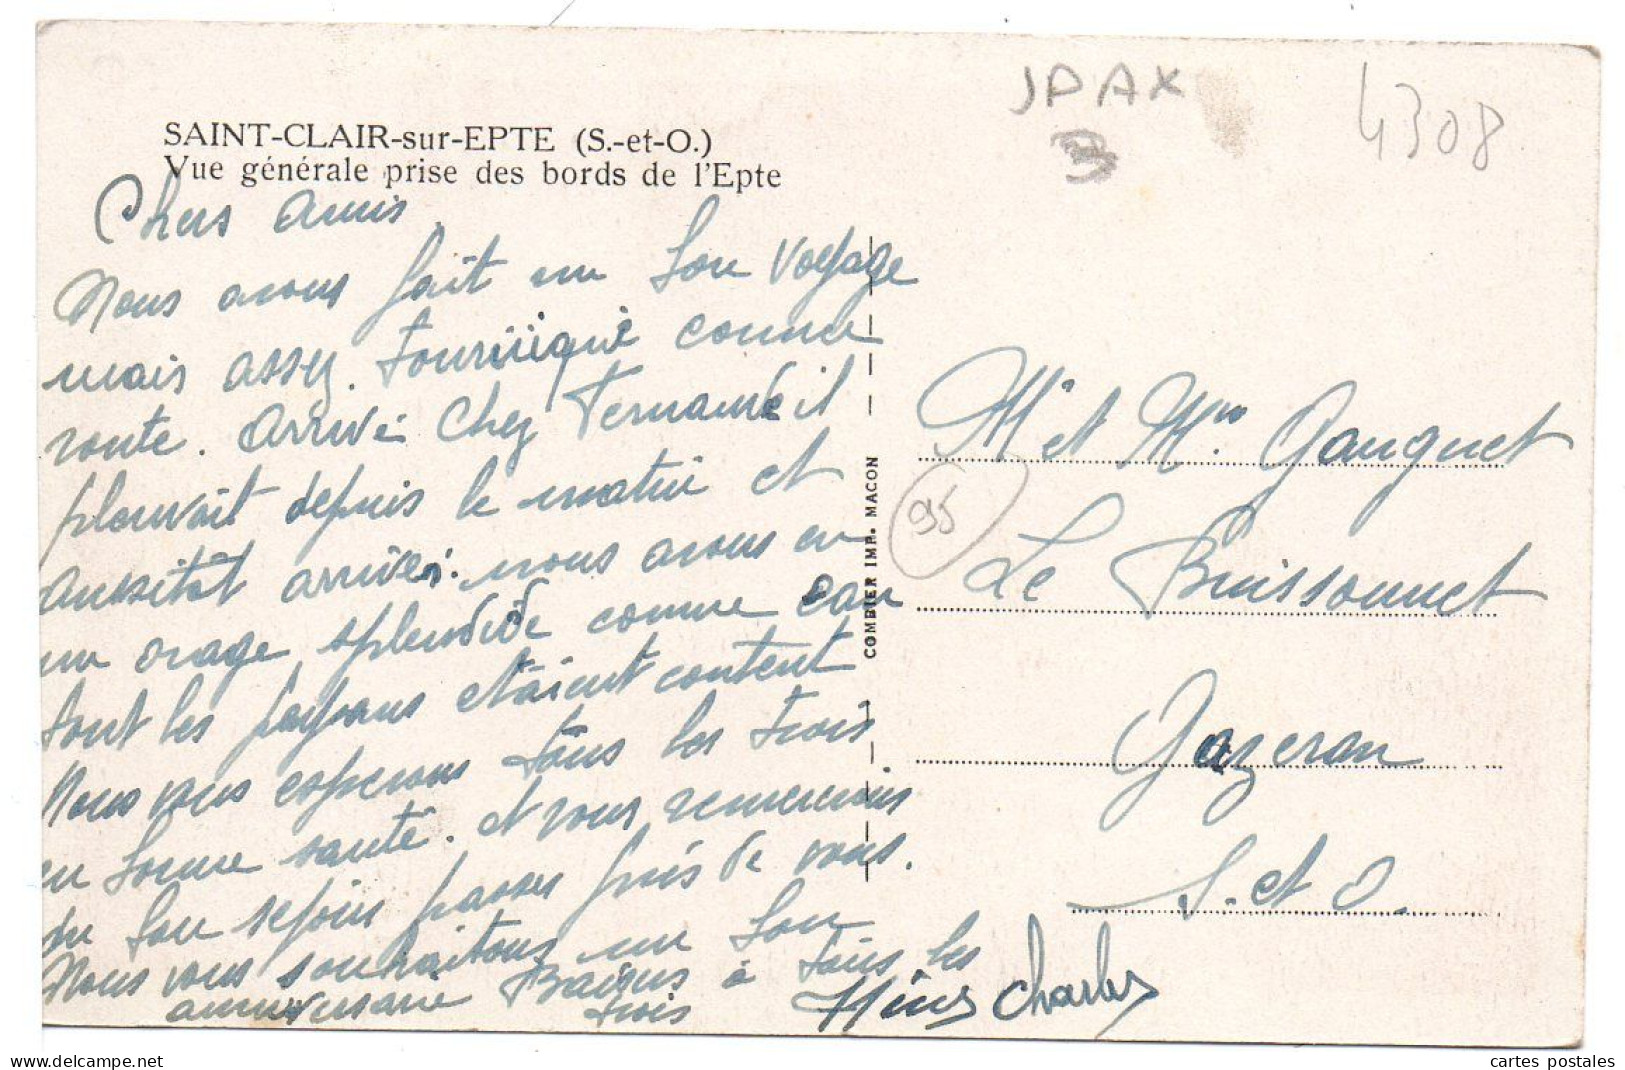 JPAX
4308
3
SAINT-CLAIR-sur-EPTE (S.-et-O.)
Vue générale prise des bords de l'Epte
Chers Amis
Nous avons fait un bon voyage
mais assez comme
route. Arrivé chez il
pleuvait depuis le matin et
aussitôt arrivés. nous avons eu
un orage splendide comme eau
tout les paysans etaient content
Nous vous esperons tous les trois
en bonne santé. et vous remercions
du bon sejour passer près de vous.
Nous vous souhaitons un bon
anniversaire Baisers à tous les
trois
Charles
COMBIER IMP. MACON
95
Mr et Mme Gauguet
Le Buissonnet
Gazeran
S. et O.
cartes postales
www.delcampe.net